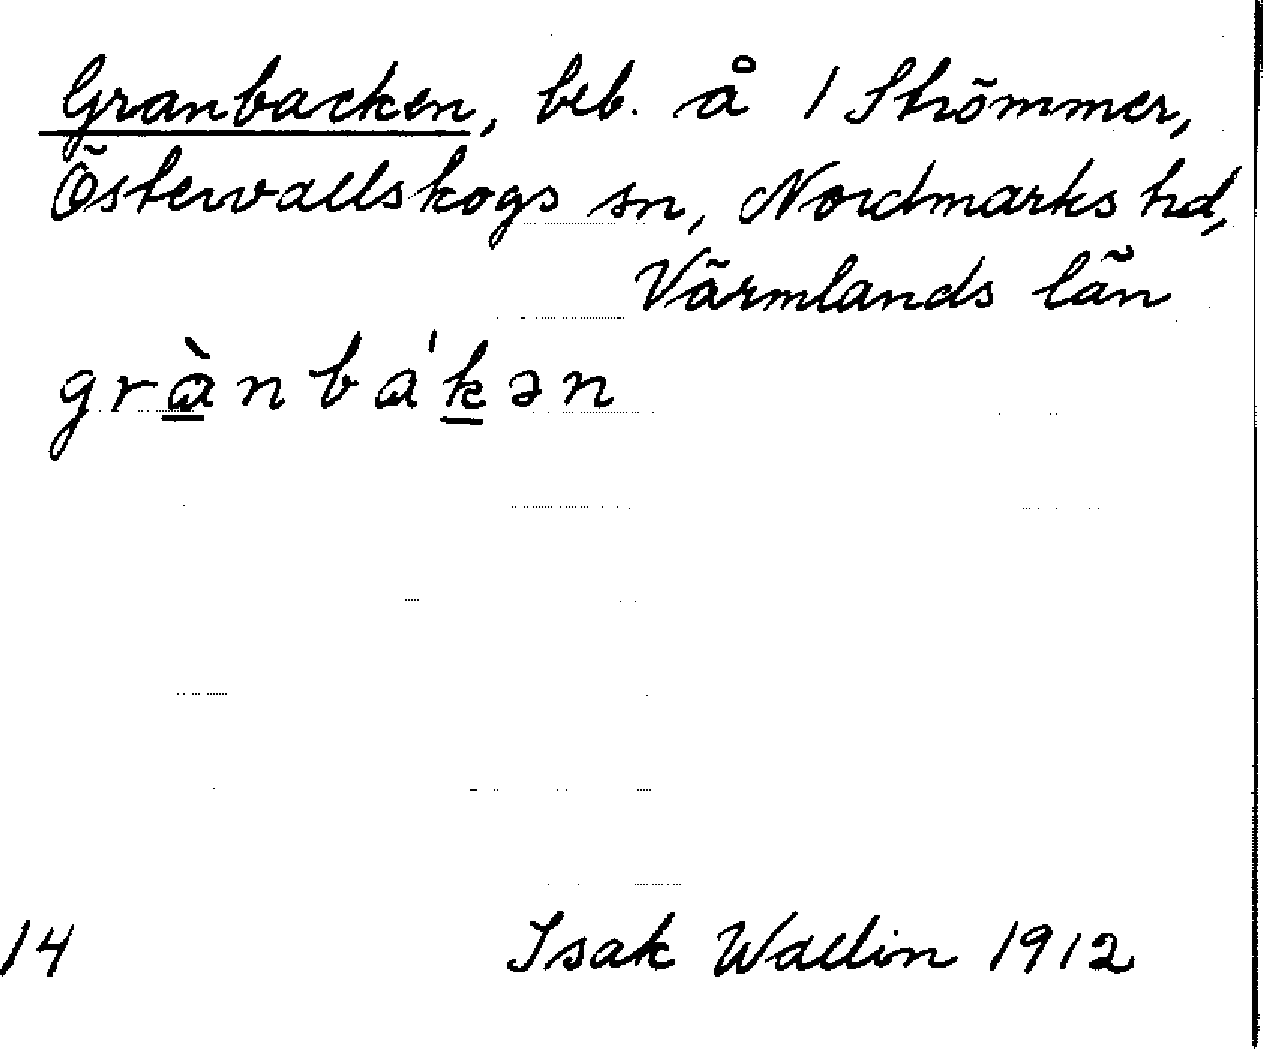 Granbacken, beb. å 1 Strömmer,
Östervallskogs sn, Nordmarks hd,
Värmlands län
grànba'kən
14 Isak Wallin 1912